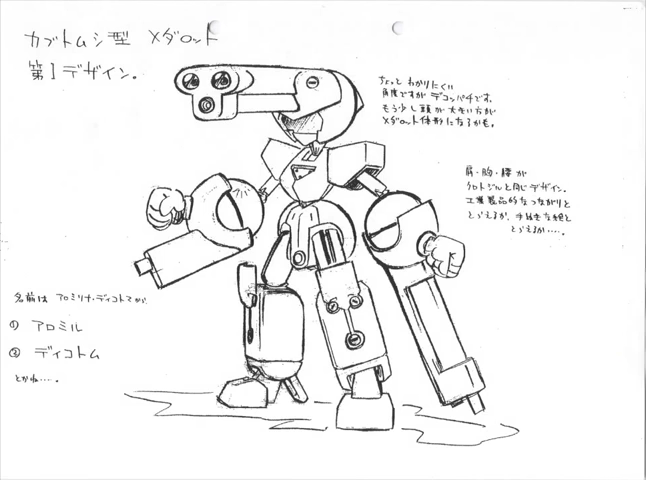 カブトムシ型 メダロット
第1デザイン。
ちょっと わかりにくい
角度ですが デコッパチです。
もう少し頭が大きい方が
メダロット体形になるかも。
肩・胸・腰が
クロトジルと同じデザイン。
工業製品的なつながりと
とらえるか、手抜きな絵と
とらえるか……。
名前は アロミリナ・ディコトマが
① アロミル
② ディコトム
とかね……。